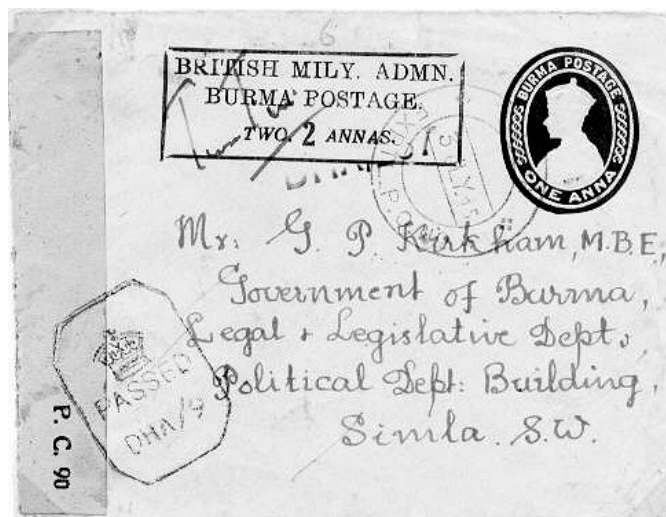 BRITISH MILY. ADMN.
BURMA POSTAGE.
TWO. 2 ANNAS.
BURMA POSTAGE
ONE ANNA
Mr. G. P. Kirkham, M.B.E,
Government of Burma,
Legal + Legislative Dept,
Political Dept: Building,
Simla. S.W.
PASSED
DHA/9
P. C. 90